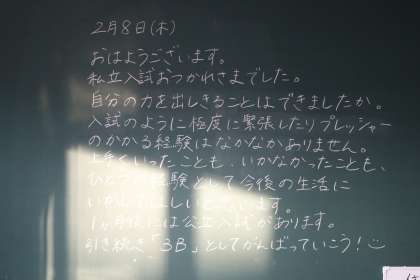 2月8日(木)
おはようございます。
私立入試おつかれさまでした。
自分の力を出しきることはできましたか。
入試のように極度に緊張したりプレッシャー
のかかる経験はなかなかありません。
上手くいったことも、いかなかったことも、
ひとつの経験として今後の生活に
いかしてほしいと思います。
1ヶ月後には公立入試があります。
引き続き「3B」としてがんばっていこう!